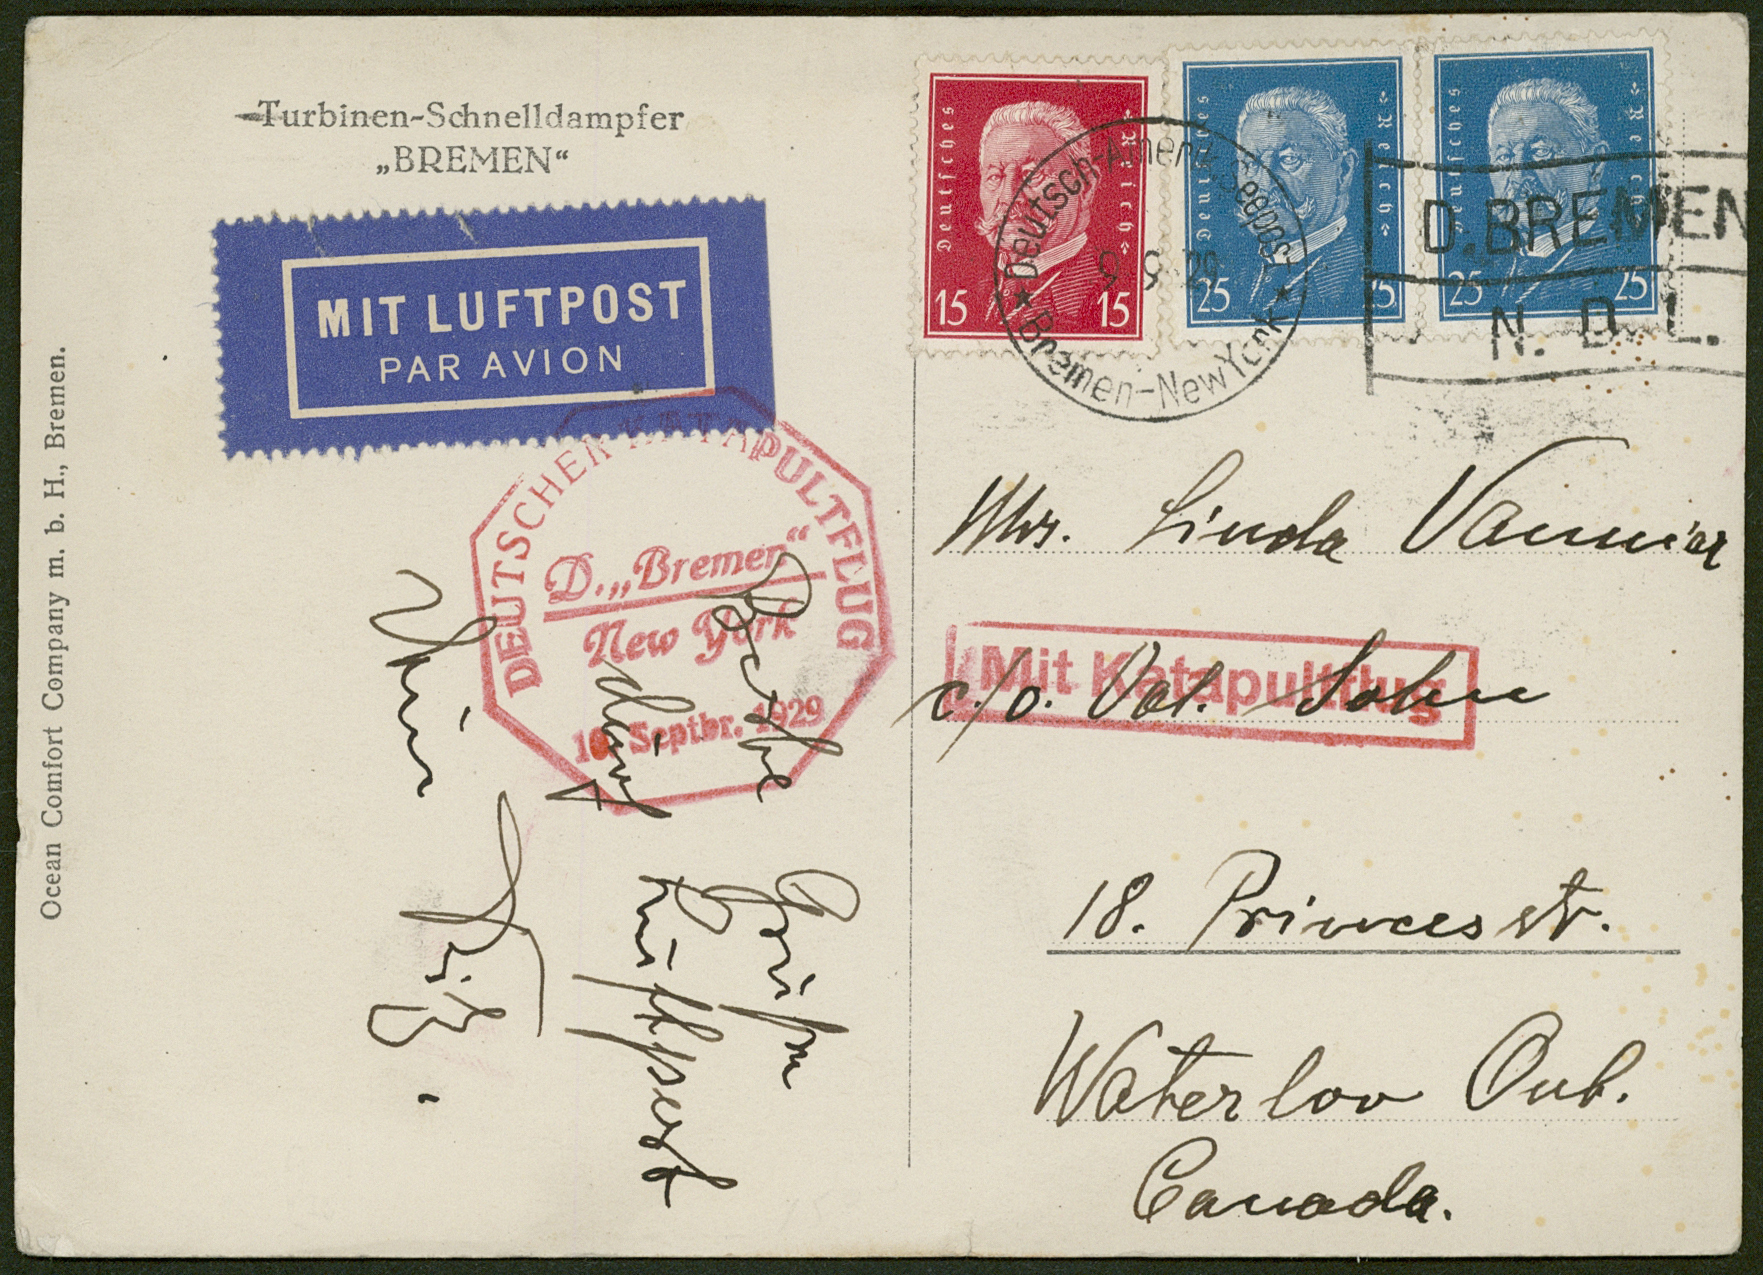 Turbinen-Schnelldampfer
„BREMEN“
MIT LUFTPOST
PAR AVION
Deutsches Reich
15 15
Deutsches Reich
25 25
Deutsches Reich
25 25
Deutsch-Amerik. Seepost
9 9 29
Bremen-New York
D. BREMEN
N. D. L.
DEUTSCHER KATAPULTFLUG
D. „Bremen“
New York
10. Septbr. 1929
Mrs. Linda
Mit Katapultflug
c/o. Val.
18. Princes str.
Waterloo Ont.
Canada.
Beste Grüße
durch Luftpost
Ocean Comfort Company m. b. H., Bremen.